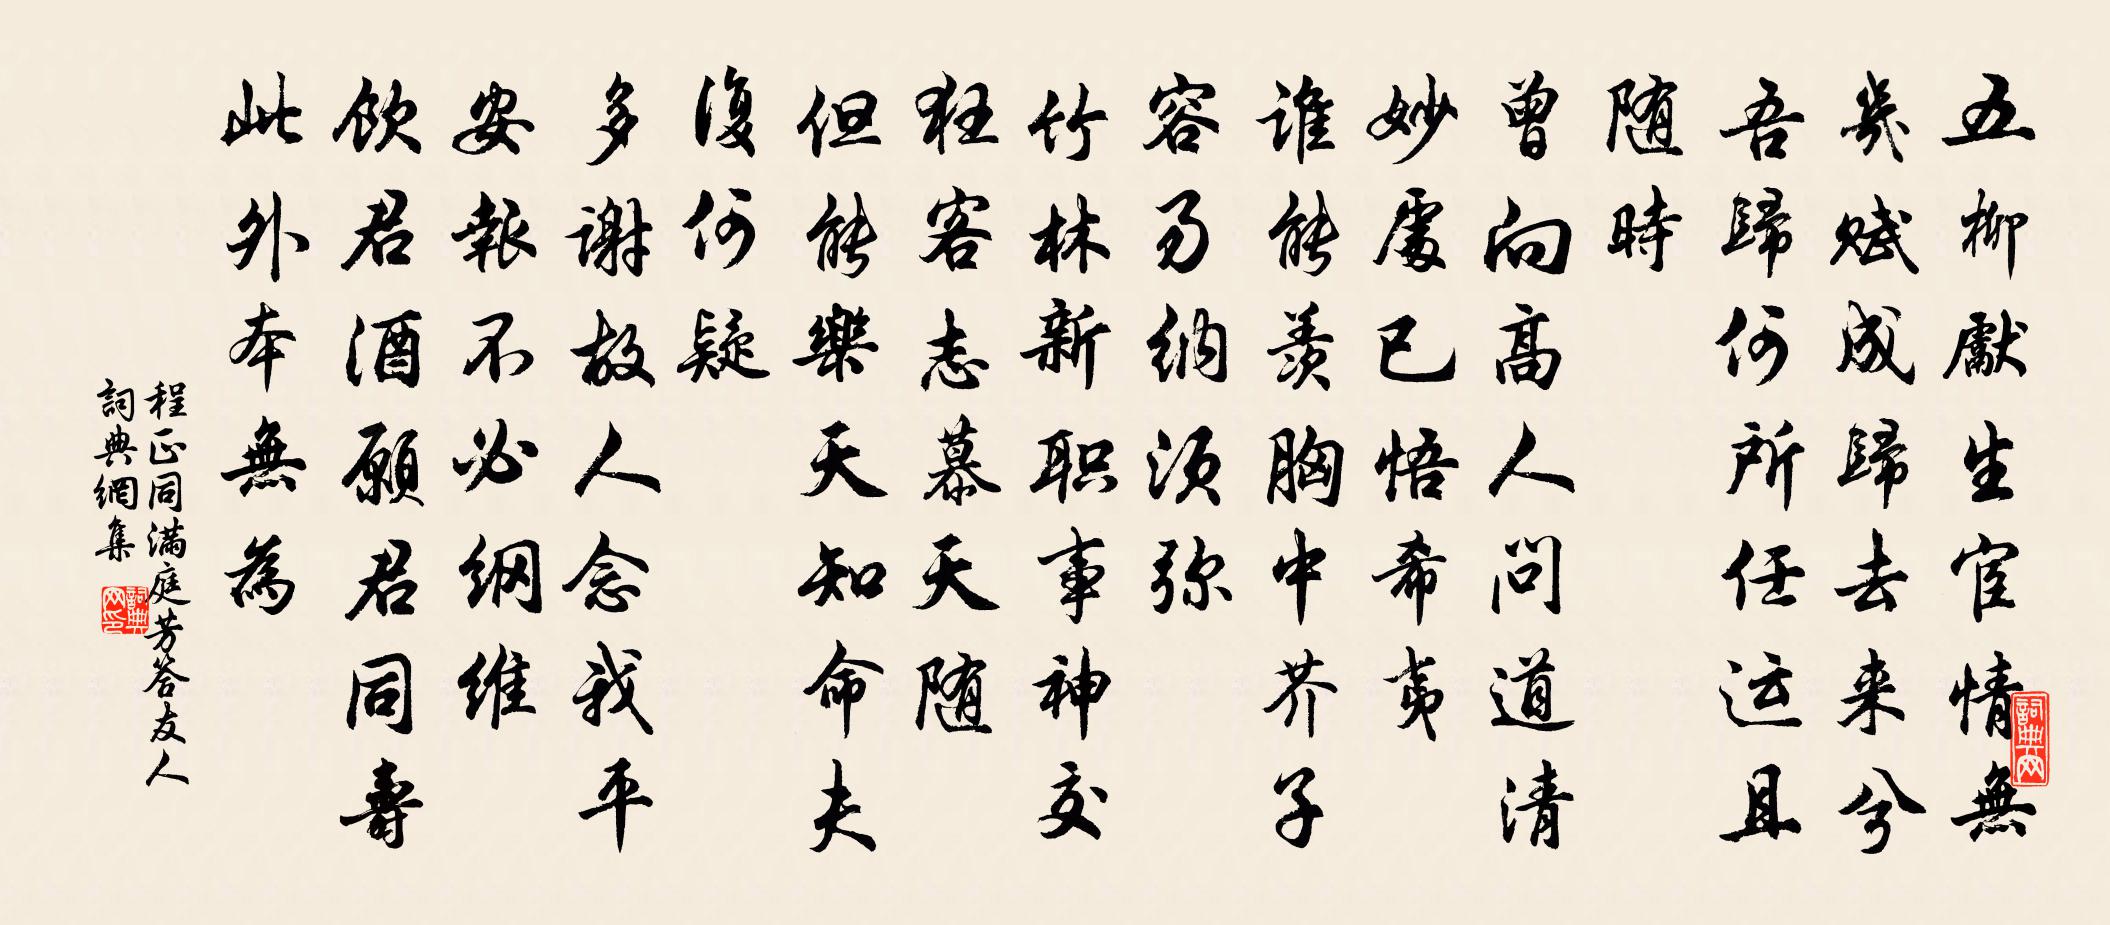 五柳獻生宦情無
幾賦成歸去来兮
吾歸何所任运且
随時
曾向高人問道清
妙處已悟希夷
谁能羡胸中芥子
容易纳须弥
竹林新职事神交
狂客志慕天随
但能樂天知命夫
復何疑
多謝故人念我平
安報不必纲维
飲君酒願君同壽
此外本無為
程正同满庭芳答友人
詞典網集
詞典网印
詞典网